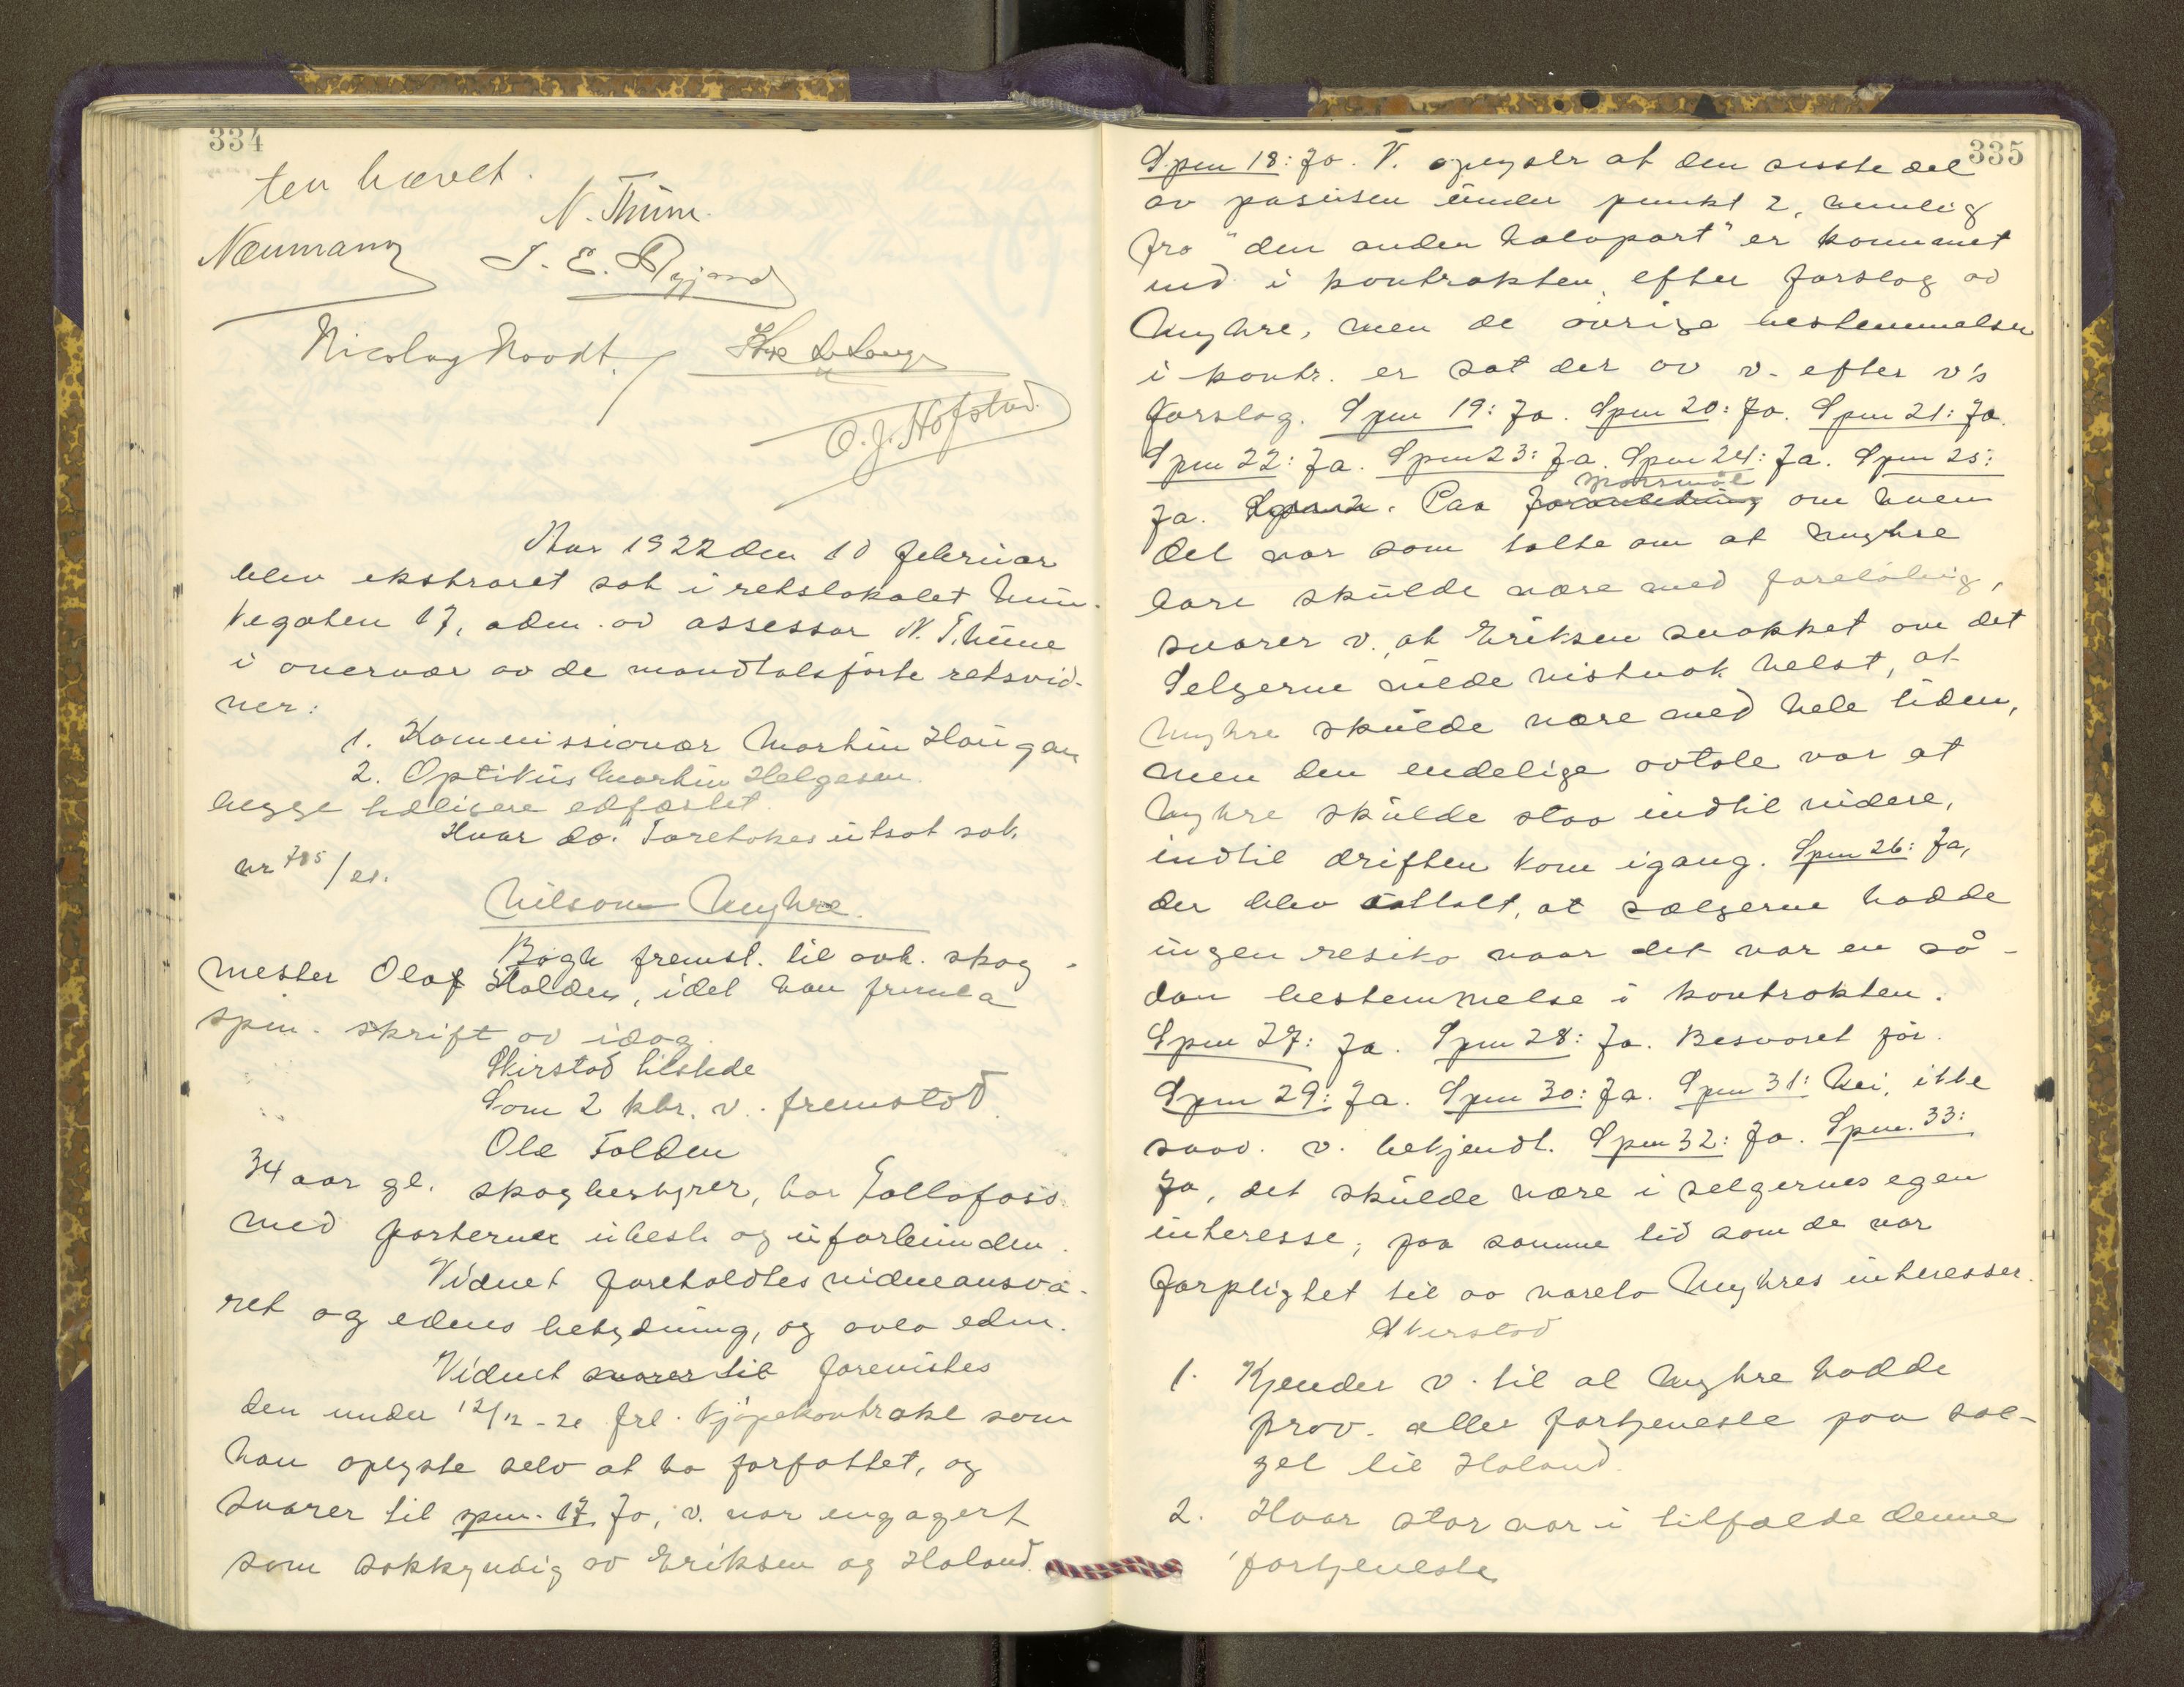 334
ten hævet.
N. Thüm.
Neumann
Nicolay Noodt.
O. J. Hofstad.
Aar 1922 den 10 februar
blev ekstraret sat i retslokalet Mün-
kegaten 17, adm. av assessor N. Thüme
i overvær av de mandtalsførte retsvid-
ner:
1. Kommissionær Martin Haugan
2. Optikus Martin Helgesen.
begge tidligere edfæstet.
Hvor da: Foretokes utsat sak
nr 785/21.
Nilson - Myhre.
Bøgh fremst. til avh. skog-
mester Olaf Holden, idet han fremla
spm. skrift av idag.
Skirstad tilstede
Som 2 kbr. v. fremstod
Ole Folden
34 aar gl. skogbestyrer, bor Follafoss
med parterne ubesl. og uforbunden.
Vidnet foreholdtes vidneansva-
ret og edens betydning, og avla eden.
Vidnet svarer til forevistes
den under 12/12-21 frl. kjøpekontrakt som
han oplyste selv at ha forfattet, og
svarer til spm. 17 Ja, v. var engagert
som sakkyndig av Eriksen og Haland.
335
Spm 18: Ja. V. oplyser at den sisste del
av passusen under punkt 2, nemlig
fra "den anden halvpart" er kommet
ind i kontrakten efter forslag av
Myhre, men de øvrige bestemmelser
i kontr. er sat der av v. efter v's
forslag. Spm 19: Ja. Spm 20: Ja. Spm 21: Ja.
Spm 22: Ja. Spm 23: Ja. Spm 24: Ja. Spm 25:
spørsmål
Ja. Paa foranledning om hvem
det var som talte om at Myhre
bare skulde være med foreløbig,
svarer v., at Eriksen snakket om det
Selgerne vilde vistnok helst, at
Myhre skulde være med hele tiden,
men den endelige avtale var at
Myhre skulde staa indtil videre,
indtil driften kom igang. Spm 26: Ja,
der blev uttalt, at sælgerne hadde
ingen resiko naar det var en så-
dan bestemmelse i kontrakten.
Spm 27: Ja. Spm 28: Ja. Besvaret før.
Spm 29: Ja. Spm 30: Ja. Spm 31: Nei, ikke
saav. v. bekjendt. Spm 32: Ja. Spm. 33:
Ja, det skulde være i selgernes egen
interesse, paa samme tid som de var
forpligtet til aa vareta Myhres interesser.
Skirstad
1. Kjender v. til at Myhre hadde
prov. eller fortjeneste paa sal-
get til Haland.
2. Hvor stor var i tilfælde denne
fortjeneste